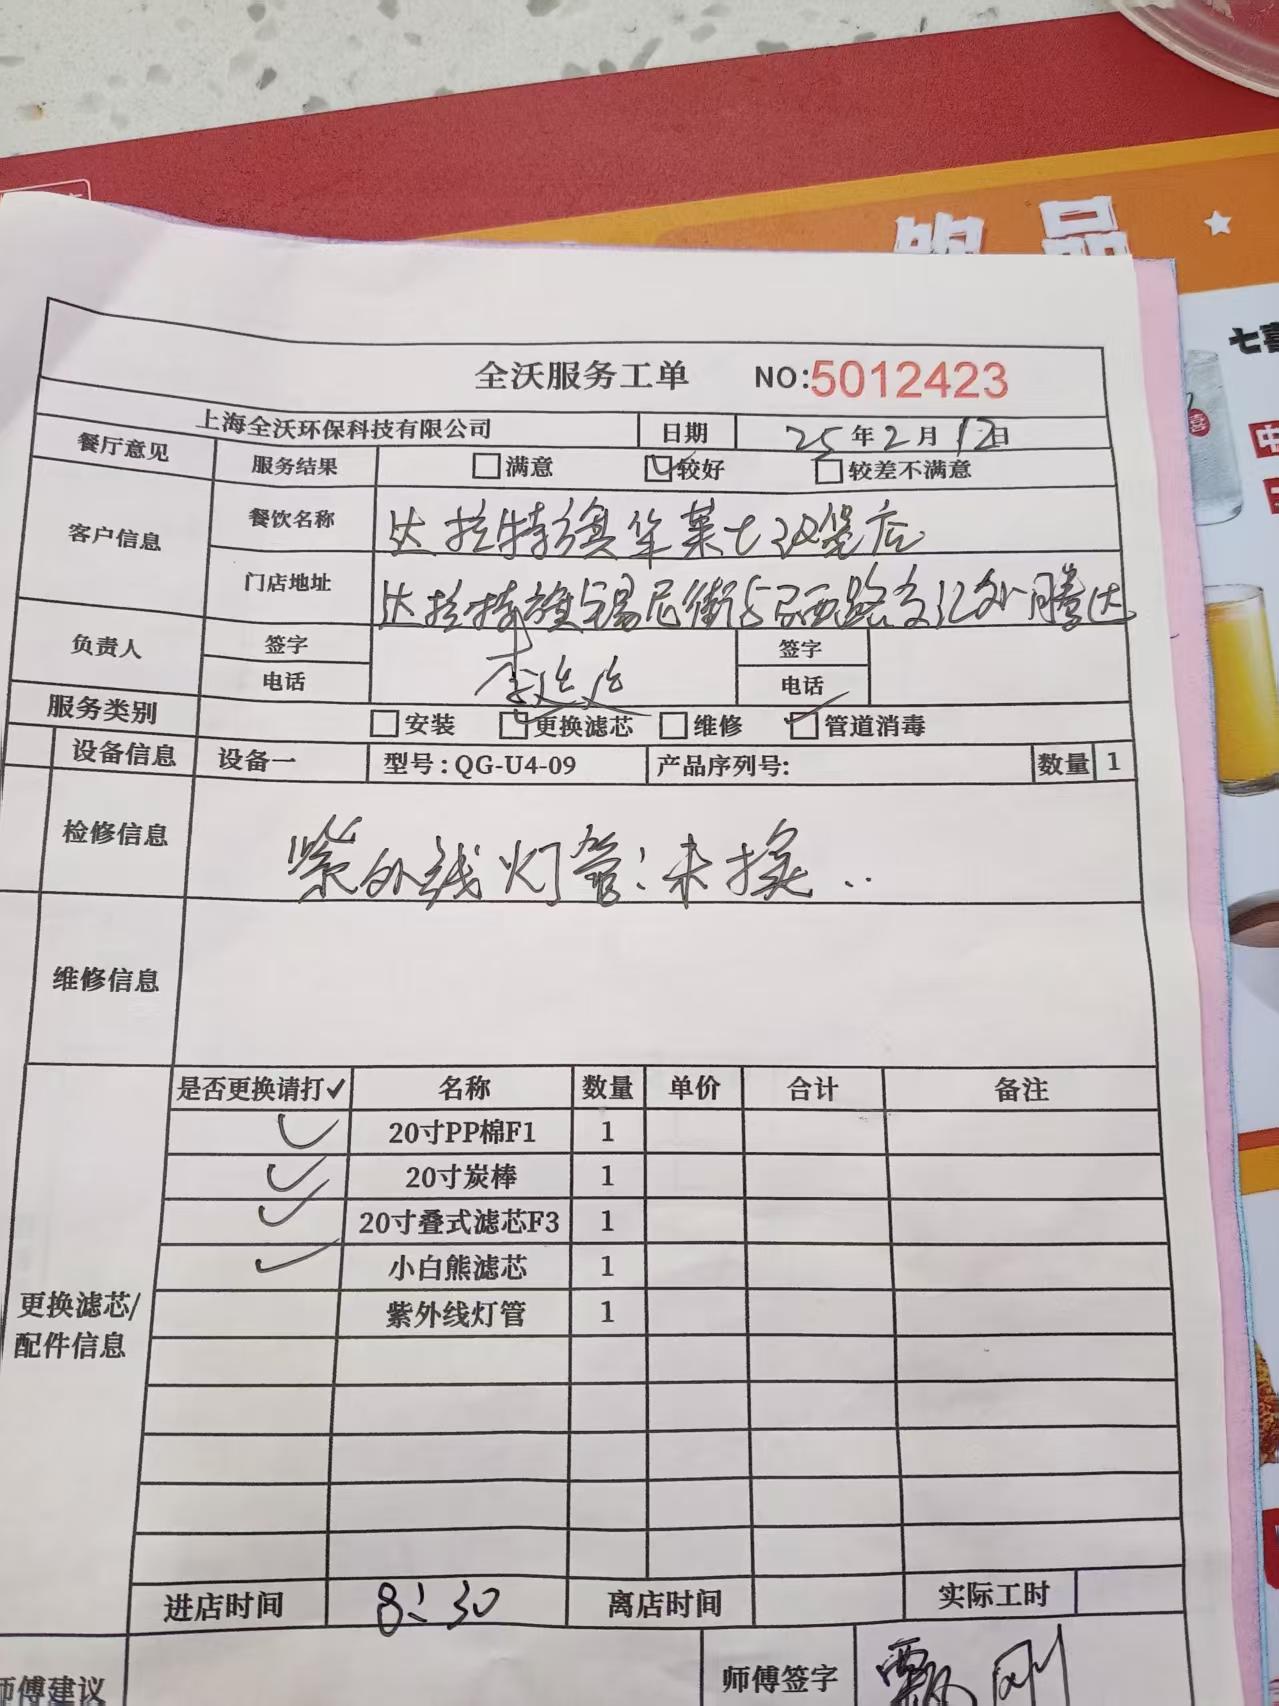 饮品
七喜
全沃服务工单 NO:5012423
上海全沃环保科技有限公司 日期 25年2月12日
餐厅意见 服务结果 满意 较好 较差不满意
客户信息 餐饮名称 达拉特旗华莱士汉堡店
门店地址 达拉特旗锡尼街与 西路交汇处腾达
负责人 签字 签字
电话 李 电话
服务类别 安装 更换滤芯 维修 管道消毒
设备信息 设备一 型号:QG-U4-09 产品序列号: 数量 1
检修信息 紫外线灯管:未换..
维修信息
是否更换请打✓ 名称 数量 单价 合计 备注
✓ 20寸PP棉F1 1
✓ 20寸炭棒 1
✓ 20寸叠式滤芯F3 1
✓ 小白熊滤芯 1
紫外线灯管 1
更换滤芯/
配件信息
进店时间 8:30 离店时间 实际工时
师傅建议 师傅签字 刚